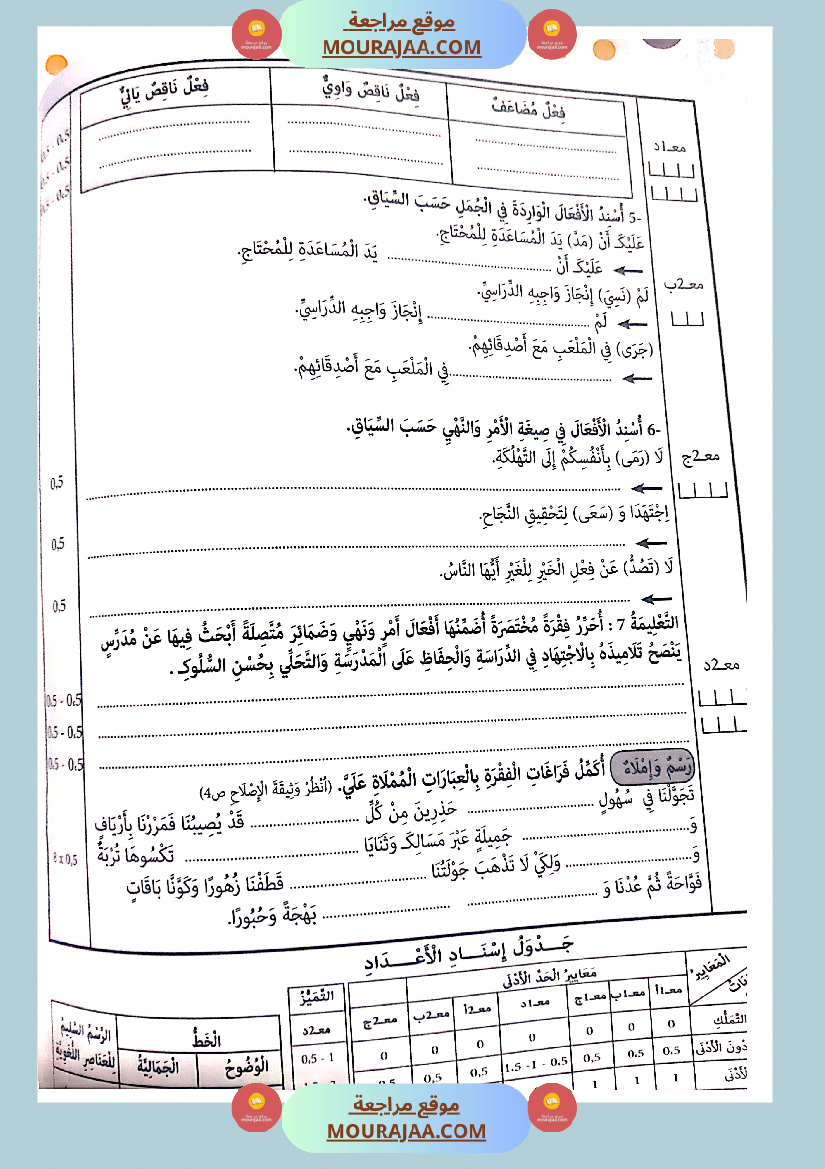 موقع مراجعة
MOURAJAA.COM
فِعْلٌ مُضَاعَفٌ
فِعْلٌ نَاقِصٌ وَاوِيٌّ
فِعْلٌ نَاقِصٌ يَائِيٌّ
معـ1د
0.5 - 0.5
0.5 - 0.5
0.5 - 0.5
5- أُسْنِدُ الْأَفْعَالَ الْوَارِدَةَ فِي الْجُمَلِ حَسَبَ السِّيَاقِ.
عَلَيْكَ أَنْ (مَدَّ) يَدَ الْمُسَاعَدَةِ لِلْمُحْتَاجِ.
عَلَيْكَ أَنْ ............ يَدَ الْمُسَاعَدَةِ لِلْمُحْتَاجِ.
معـ2ب
لَمْ (نَسِيَ) إِنْجَازَ وَاجِبِهِ الدِّرَاسِيِّ.
لَمْ ............ إِنْجَازَ وَاجِبِهِ الدِّرَاسِيِّ.
(جَرَى) فِي الْمَلْعَبِ مَعَ أَصْدِقَائِهِمْ.
............ فِي الْمَلْعَبِ مَعَ أَصْدِقَائِهِمْ.
6- أُسْنِدُ الْأَفْعَالَ فِي صِيغَةِ الْأَمْرِ وَالنَّهْيِ حَسَبَ السِّيَاقِ.
معـ2ج
لَا (رَمَى) بِأَنْفُسِكُمْ إِلَى التَّهْلُكَةِ.
0,5
اِجْتَهَدَا وَ (سَعَى) لِتَحْقِيقِ النَّجَاحِ.
0,5
لَا (تَصُدُّ) عَنْ فِعْلِ الْخَيْرِ لِلْغَيْرِ أَيُّهَا النَّاسُ.
0,5
التَّعْلِيمَةُ 7 : أُحَرِّرُ فِقْرَةً مُخْتَصَرَةً أُضَمِّنُهَا أَفْعَالَ أَمْرٍ وَنَهْيٍ وَضَمَائِرَ مُتَّصِلَةً أَبْحَثُ فِيهَا عَنْ مُدَرِّسٍ
يَنْصَحُ تَلَامِيذَهُ بِالْاجْتِهَادِ فِي الدِّرَاسَةِ وَالْحِفَاظِ عَلَى الْمَدْرَسَةِ وَالتَّحَلِّي بِحُسْنِ السُّلُوكِ .
معـ2د
0.5 - 0.5
0.5 - 0.5
0.5 - 0.5
رَسْمٌ وَإِمْلَاءٌ أُكَمِّلُ فَرَاغَاتِ الْفِقْرَةِ بِالْعِبَارَاتِ الْمُمْلَاةِ عَلَيَّ. (اُنْظُرْ وَثِيقَةَ الْإِصْلَاحِ ص4)
تَجَوَّلْنَا فِي سُهُولٍ ............ حَذِرِينَ مِنْ كُلِّ ............ قَدْ يُصِيبُنَا فَمَرَرْنَا بِأَرْيَافٍ
وَ ............ جَمِيلَةٍ عَبْرَ مَسَالِكَ وَثَنَايَا ............ تَكْسُوهَا تُرْبَةٌ
8 x 0,5
وَ ............ وَلِكَيْ لَا تَذْهَبَ جَوْلَتُنَا ............ قَطَفْنَا زُهُورًا وَكَوَّنَّا بَاقَاتٍ
فَوَّاحَةً ثُمَّ عُدْنَا وَ ............ بَهْجَةً وَحُبُورًا.
جَـــدْوَلُ إِسْنَـــادِ الْأَعْـــدَادِ
الْمَعَايِيرُ
مَعَايِيرُ الْحَدِّ الْأَدْنَى
التَّمَيُّزُ
معـ1أ معـ1ب معـ1ج معـ1د معـ2أ معـ2ب معـ2ج معـ2د
التَّمَلُّكِ 0 0 0 0 0 0 0
دُونَ الْأَدْنَى 0.5 0.5 0,5 0.5 - 1- 1.5 0,5 0,5 0,5 1 - 0,5
1 1 1
الْخَطُّ
الرَّسْمُ السَّلِيمُ
لِلْعَنَاصِرِ اللُّغَوِيَّةِ
الْوُضُوحُ
الْجَمَالِيَّةُ
موقع مراجعة
MOURAJAA.COM